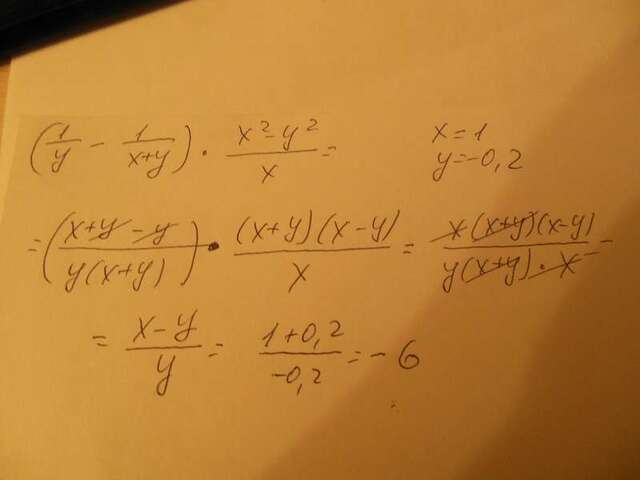 (1/y - 1/(x+y)) · (x²-y²)/x = x=1
y=-0,2
= ((x+y-y)/(y(x+y))) · ((x+y)(x-y))/x = (x(x+y)(x-y))/(y(x+y)·x) =
= (x-y)/y = (1+0,2)/(-0,2) = -6